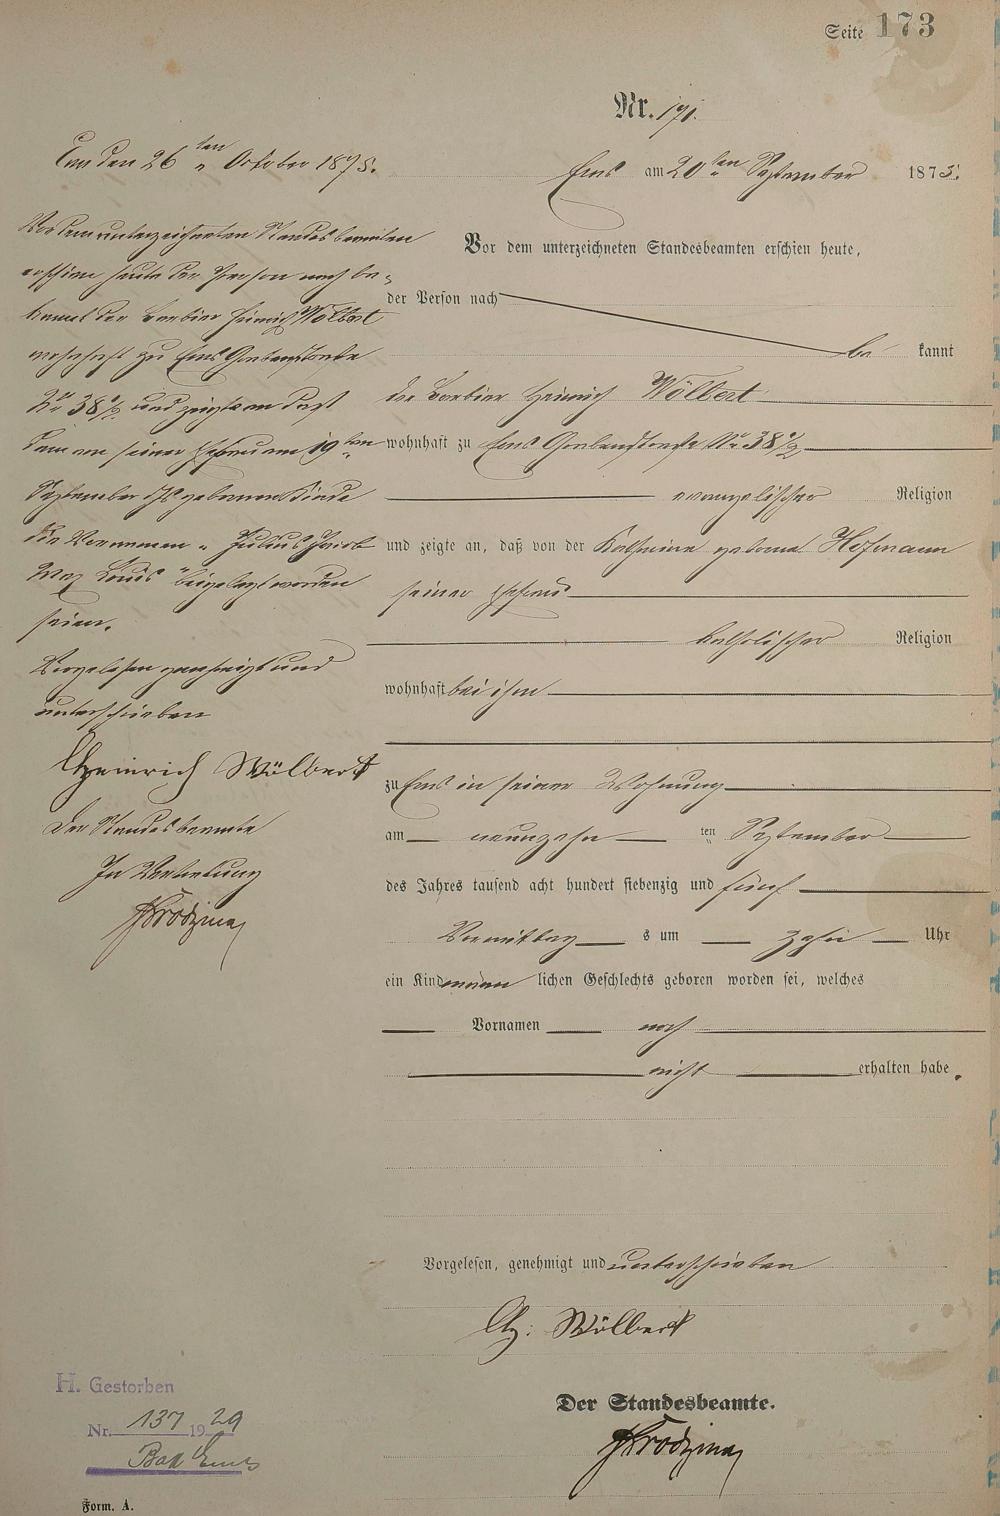 Seite 173
Nr. 191.
Ems den 26ten October 1875.
Vor dem unterzeichneten Standesbeamten
erschien heute der Person nach be-
kannt der Barbier Heinrich Wölbert
wohnhaft zu Ems Grabenstraße
No 38 1/2 und zeigte an daß
dem von seiner Ehefrau am 19ten
September d Js geborenen Kinde
die Vornamen „Julius Jacob
Max Louis" beigelegt worden
seien.
Vorgelesen genehmigt und
unterschrieben
Heinrich Wölbert
Der Standesbeamte
In Vertretung
Ems am 20ten September 1875.
Vor dem unterzeichneten Standesbeamten erschien heute,
der Person nach
be kannt
der Barbier Heinrich Wölbert
wohnhaft zu Ems Grabenstraße No 38 1/2
evangelischer Religion
und zeigte an, daß von der Katharina geborne Hofmann
seiner Ehefrau
katholischer Religion
wohnhaft bei ihm
zu Ems in seiner Wohnung
am neunzehn ten September
des Jahres tausend acht hundert siebenzig und fünf
Vormittag s um zehn Uhr
ein Kind männ lichen Geschlechts geboren worden sei, welches
Vornamen noch
nicht erhalten habe.
Vorgelesen, genehmigt und unterschrieben
H. Wölbert
Der Standesbeamte.
H. Gestorben
Nr. 137 1929
Bad Ems
Form. A.